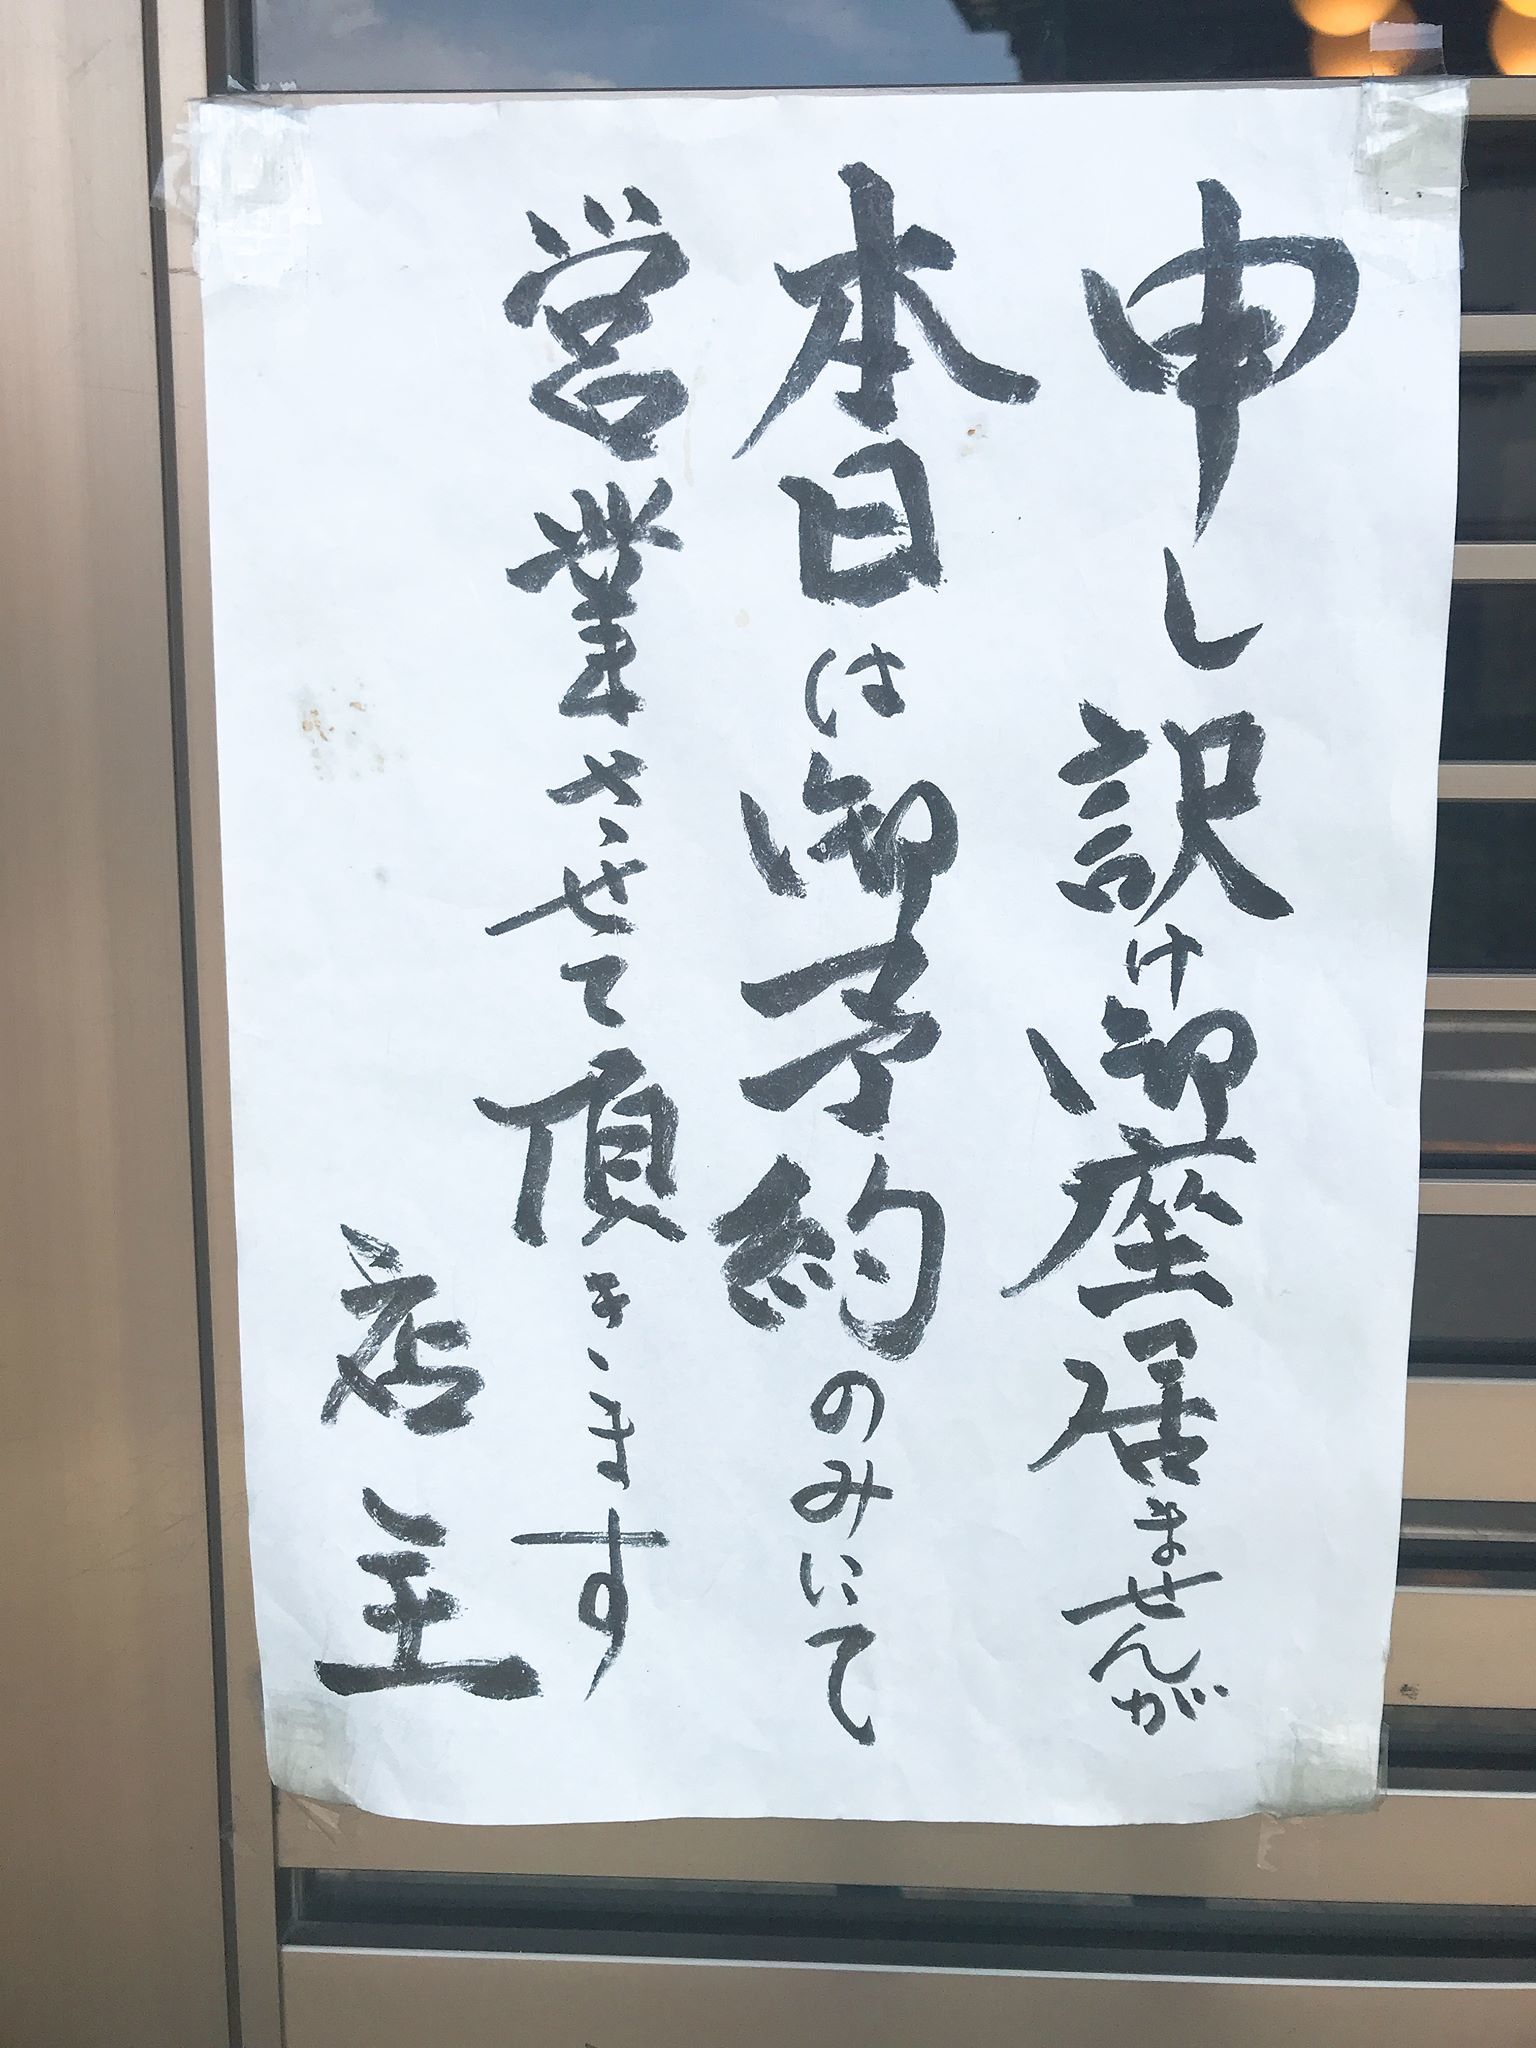 申し訳け御座居ませんが
本日は御予約のみにて
営業させて頂きます
店主